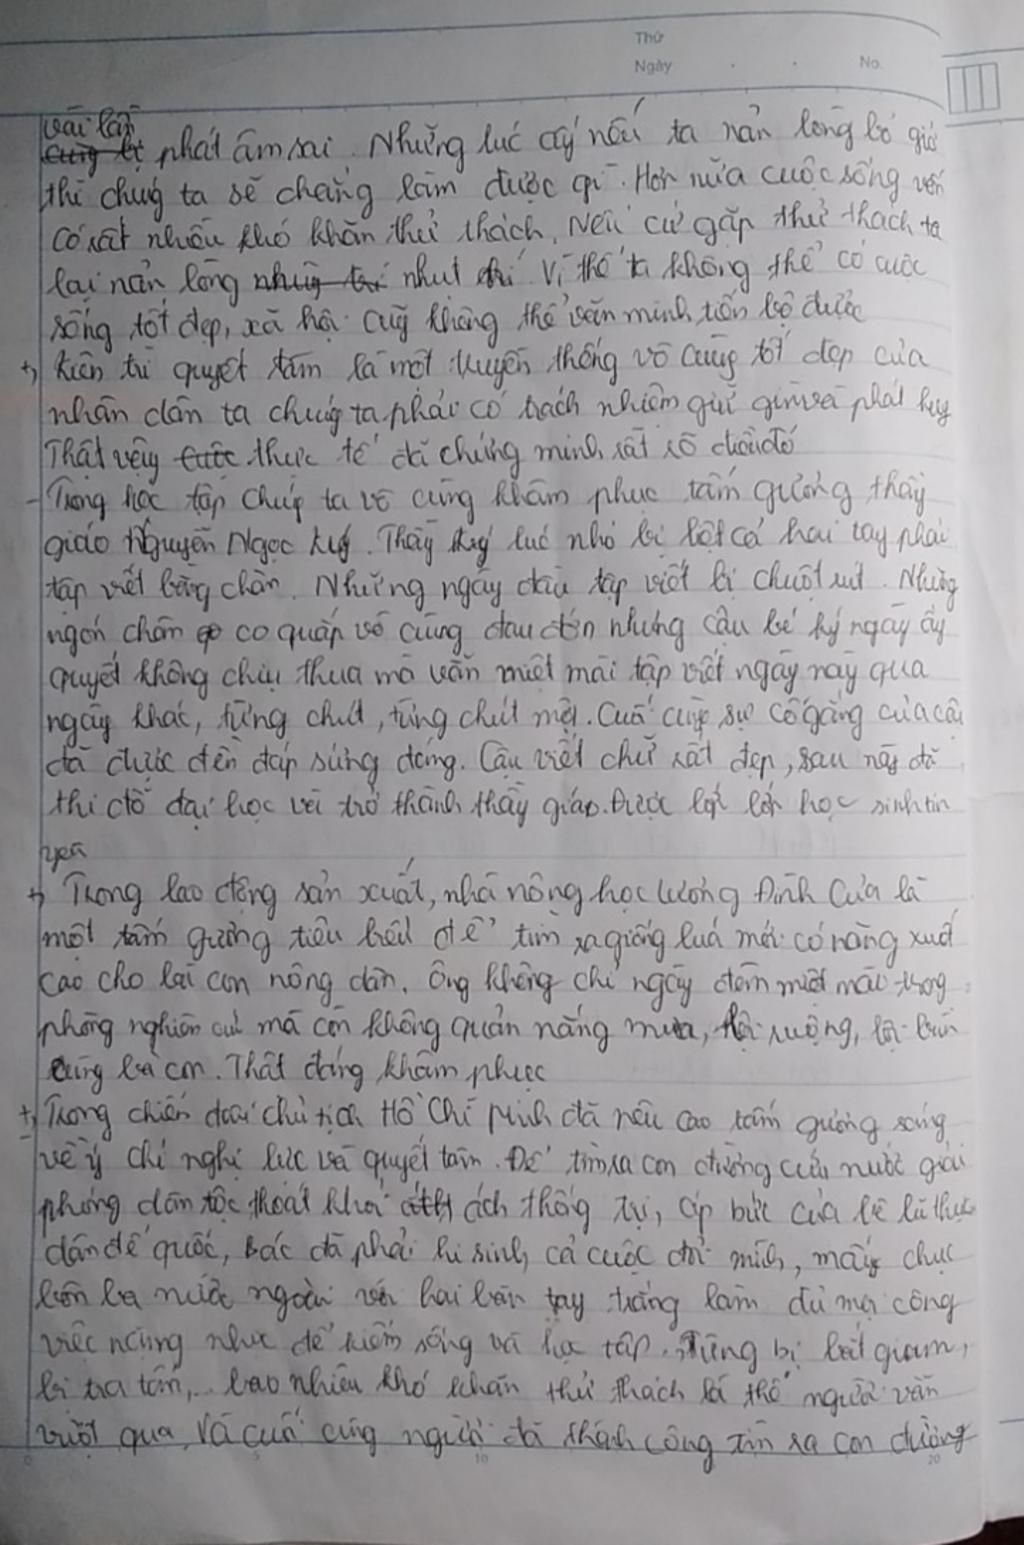 Thứ
Ngày No.
vài lần
cũng bị phát âm sai. Những lúc ấy nếu ta nản lòng bỏ giở
thì chúng ta sẽ chẳng làm được gì. Hơn nữa cuộc sống vốn
có rất nhiều khó khăn thử thách. Nếu cứ gặp thử thách ta
lại nản lòng như thế. Vì thế ta không thể có cuộc
sống tốt đẹp, xã hội cũng không thể văn minh tiến bộ được
+, Kiên trì quyết tâm là một truyền thống vô cùng tốt đẹp của
nhân dân ta chúng ta phải có trách nhiệm giữ gìn và phát huy
Thật vậy thực tế đã chứng minh rất rõ điều đó
- Trong học tập chúng ta vô cùng khâm phục tấm gương thầy
giáo Nguyễn Ngọc Ký. Thầy Ký lúc nhỏ bị liệt cả hai tay phải
tập viết bằng chân. Những ngày đầu tập viết bị chuột rút. Những
ngón chân co quắp vô cùng đau đớn nhưng cậu bé Ký ngày ấy
quyết không chịu thua mà vẫn miệt mài tập viết ngày này qua
ngày khác, từng chút, từng chút một. Cuối cùng sự cố gắng của cậu
đã được đền đáp xứng đáng. Cậu viết chữ rất đẹp, sau này đã
thi đỗ đại học và trở thành thầy giáo. Được lớp lớp học sinh tin
yêu
+, Trong lao động sản xuất, nhà nông học Lương Đình Của là
một tấm gương tiêu biểu để tìm ra giống luá mới có năng xuất
cao cho bà con nông dân. Ông không chỉ ngày đêm miệt mài trong
phòng nghiên cứu mà còn không quản nắng mưa, lội ruộng, lội bùn
cùng bà con. Thật đáng khâm phục
+, Trong chiến đấu chủ tịch Hồ Chí Minh đã nêu cao tấm gương sáng
về ý chí nghị lực và quyết tâm. Để tìm ra con đường cứu nước giải
phóng dân tộc thoát khỏi ách thống trị, áp bức của bè lũ thực
dân đế quốc, Bác đã phải hi sinh cả cuộc đời mình, mấy chục
bôn ba nước ngoài với hai bàn tay trắng làm đủ mọi công
việc nặng nhọc để kiếm sống và học tập. Từng bị bắt giam,
bị tra tấn,.. bao nhiêu khó khăn thử thách là thế người vẫn
vượt qua. Và cuối cùng người đã thành công tìm ra con đường
0 5 10 20